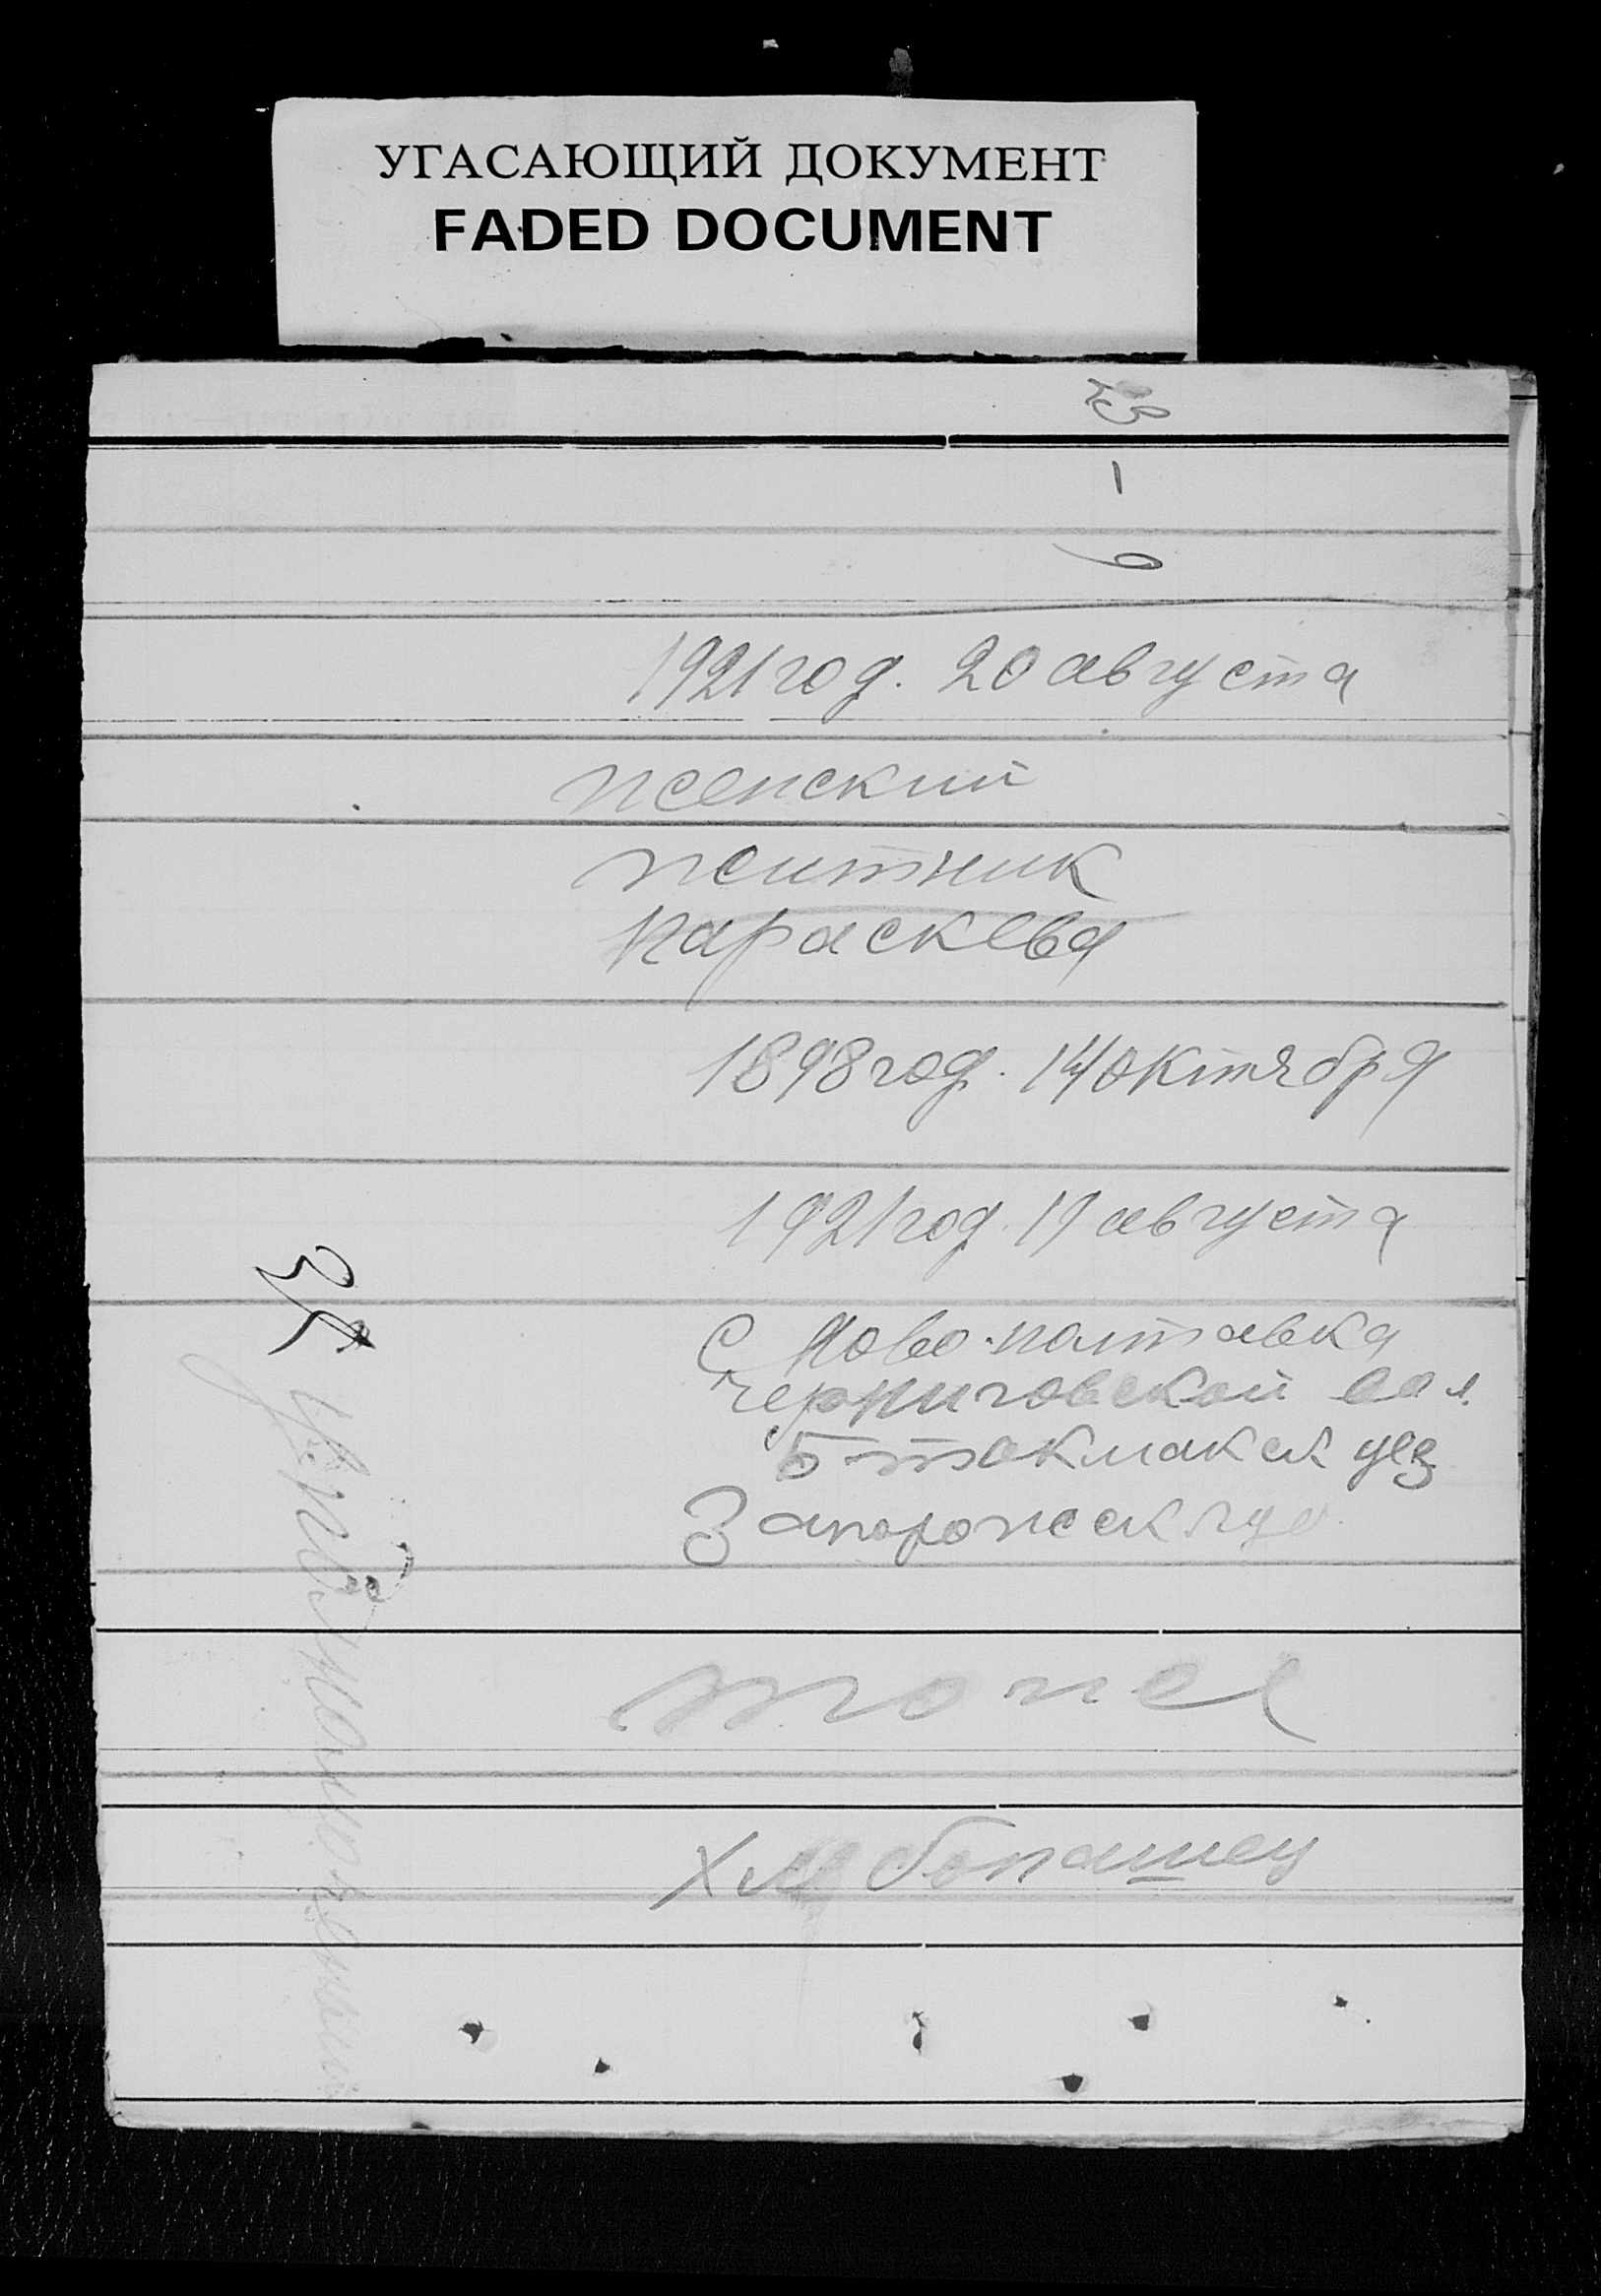 УГАСАЮЩИЙ ДОКУМЕНТ
FADED DOCUMENT
1
6
1921 год. 20 августа
женский
житник
Параскева
1898 год. 14 октября
1921 год. 19 августа
С Ново-полтавка
черниговской вол.
Б токмакск уез
Запорожск гуо
тоже
Хлебопашец